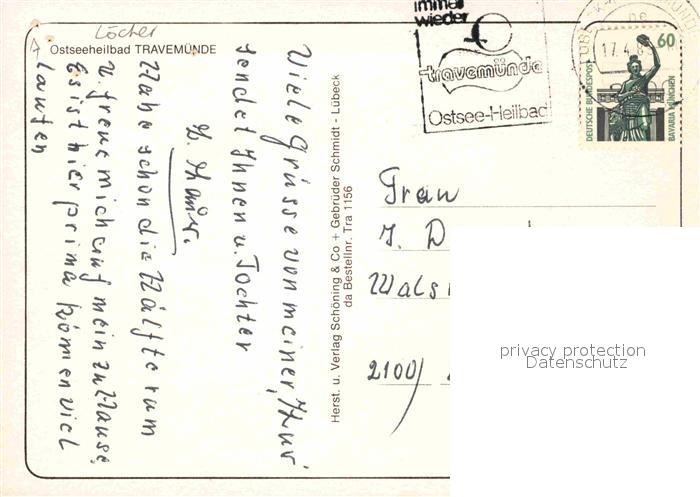 Löcher
Ostseeheilbad TRAVEMÜNDE
Viele Grüsse von meiner, Kur
sendet Ihnen u. Tochter
Habe schon die Hälfte rum
u. freue mich auf mein zu Hause,
Es ist hier prima können viel
laufen
Herst. u. Verlag Schöning & Co + Gebrüder Schmidt - Lübeck
da Bestellnr. Tra 1156
immer
wieder
travemünde
Ostsee-Heilbad
17.4.8
60
DEUTSCHE BUNDESPOST
BAVARIA MÜNCHEN
Frau
J. D
Wals
2100/
privacy protection
Datenschutz